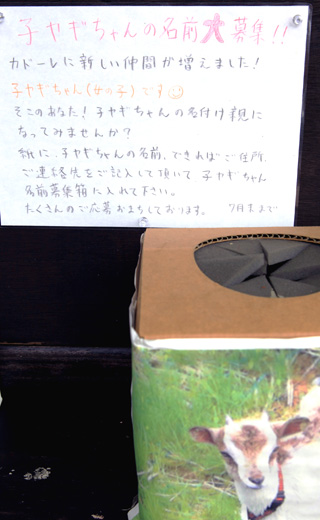 子ヤギちゃんの名前大募集!!
カドーレに新しい仲間が増えました!
子ヤギちゃん(女の子)です
そこのあなた!子ヤギちゃんの名付け親に
なってみませんか?
紙に、子ヤギちゃんの名前、できればご住所、
ご連絡先をご記入して頂いて 子ヤギちゃん
名前募集箱に入れて下さい。
たくさんのご応募おまちしております。 7月末まで